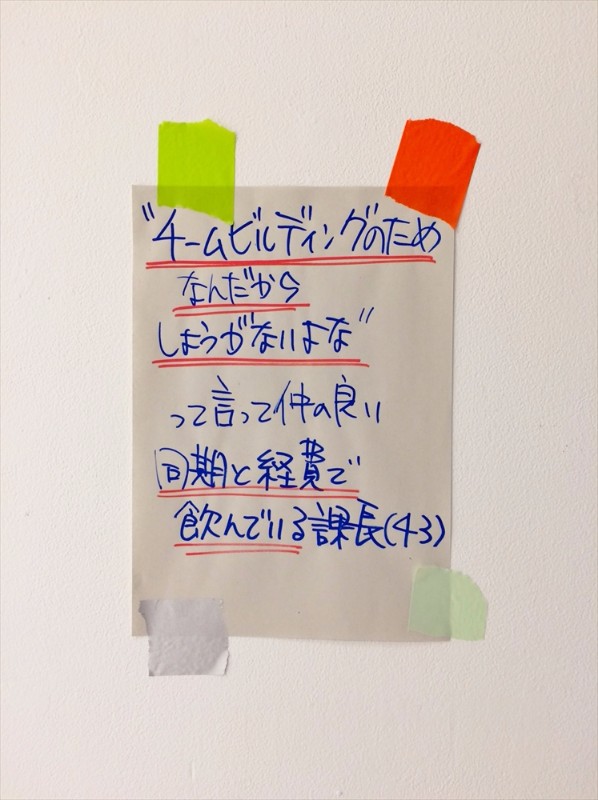 "チームビルディングのため
なんだから
しょうがないよな"
って言って仲の良い
同期と経費で
飲んでいる課長(43)